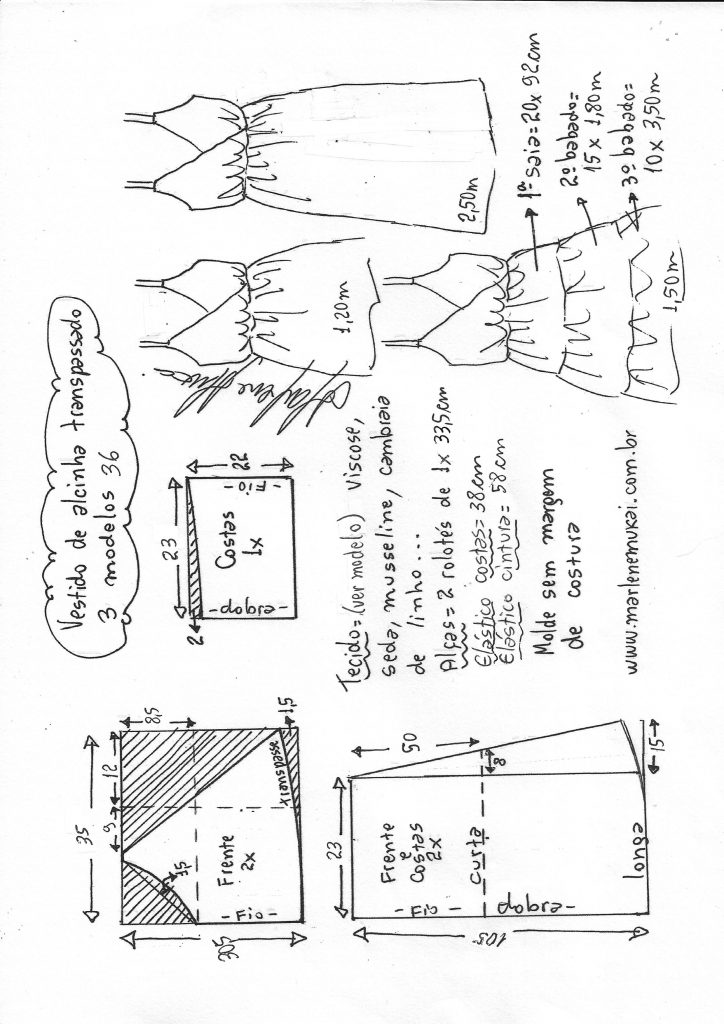 Vestido de alcinha transpassado
3 modelos 36
35
9
12
8,5
30,5
3,5
1,5
Frente
2x
- Fio -
Transpasse
23
22
2
Costas
1x
- Fio -
- dobra -
1,20m
2,50m
1,50m
1ª saia = 20 x 92cm
2º babado =
15 x 1,80m
3º babado =
10 x 3,50m
23
50
8
105
15
Frente
e
Costas
2x
curta
- Fio -
dobra -
longa
Tecido = (ver modelo) Viscose,
seda, musseline, cambraia
de linho...
Alças = 2 rolotés de 1x 33,5cm
Elástico costas = 38cm
Elástico cintura = 58cm
Molde sem margem
de costura
www.marlenemukai.com.br